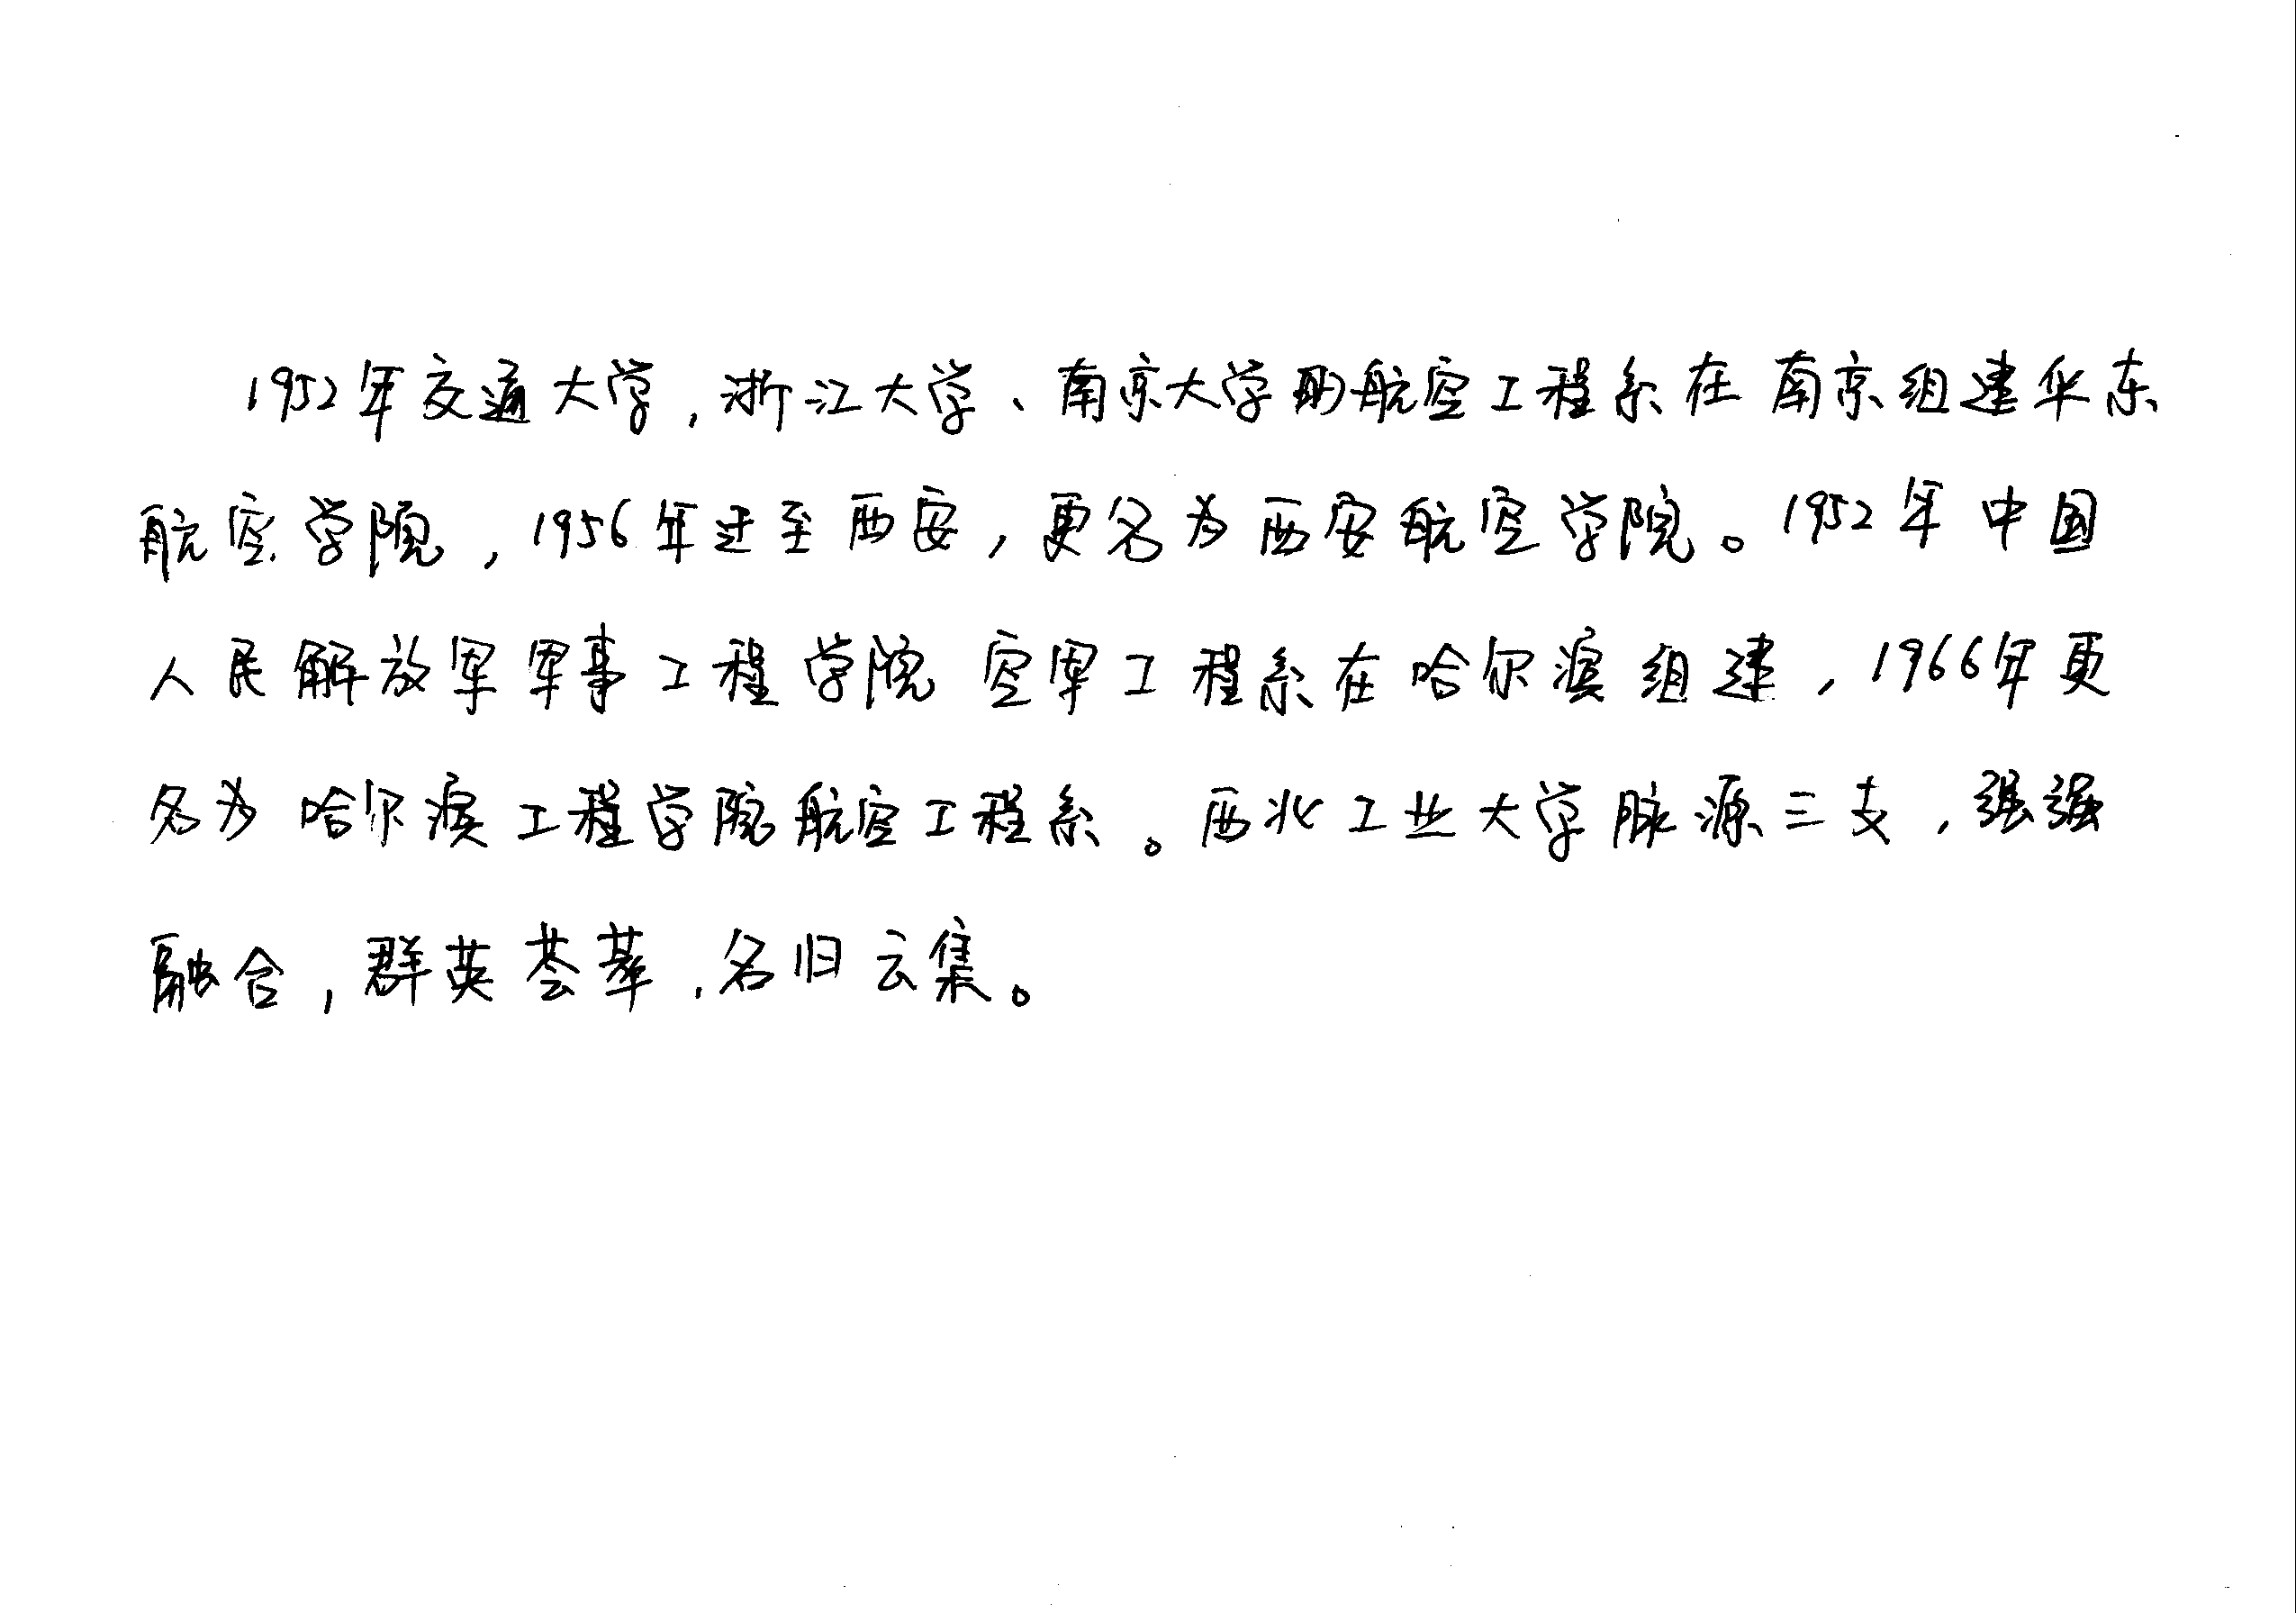 1952年交通大学,浙江大学、南京大学的航空工程系在南京组建华东
航空学院,1956年迁至西安,更名为西安航空学院。1952年中国
人民解放军军事工程学院空军工程系在哈尔滨组建,1966年更
名为哈尔滨工程学院航空工程系。西北工业大学脉源三支,强强
融合,群英荟萃,名归云集。